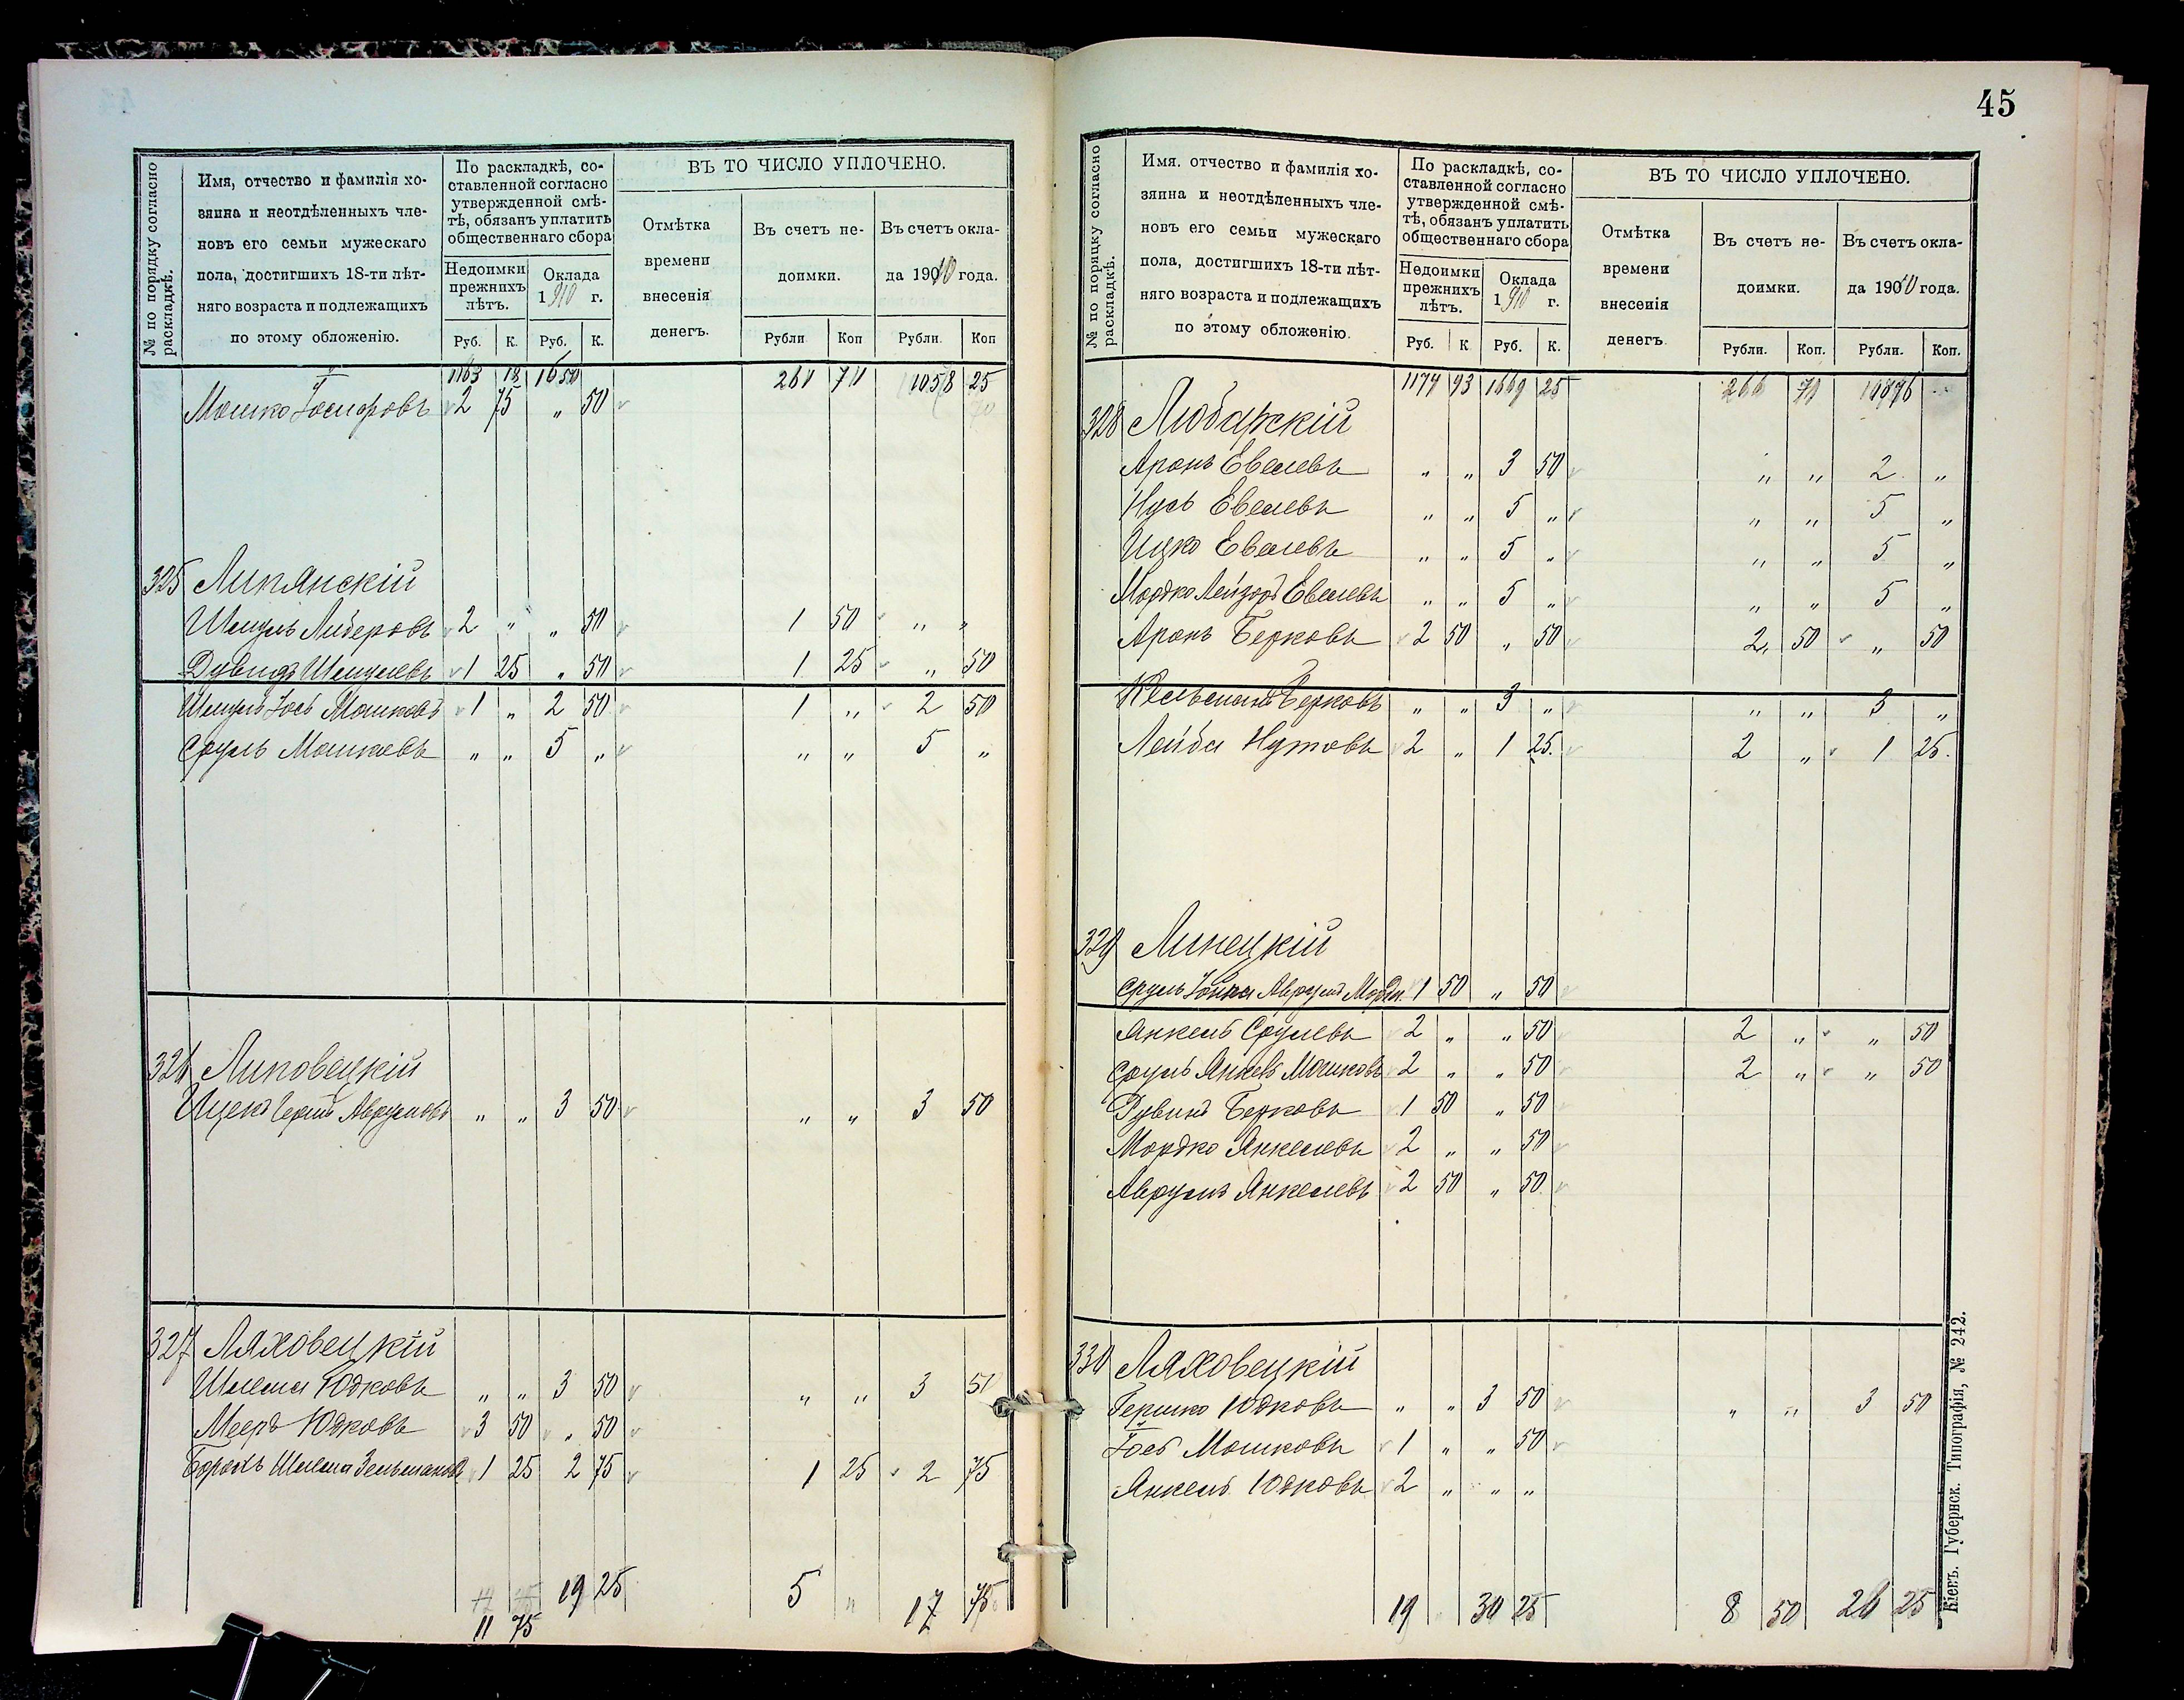 № по порядку согласно раскладкѣ.
Имя, отчество и фамилія хо-
зяина и неотдѣленныхъ чле-
новъ его семьи мужескаго
пола, достигшихъ 18-ти лѣт-
няго возраста и подлежащихъ
по этому обложенію.
По раскладкѣ, со-
ставленной согласно
утвержденной смѣ-
тѣ, обязанъ уплатить
общественнаго сбора
Недоимки
прежнихъ
лѣтъ.
Оклада
1910 г.
Руб. К. Руб. К.
ВЪ ТО ЧИСЛО УПЛОЧЕНО.
Отмѣтка
времени
внесенія
денегъ.
Въ счетъ не-
доимки.
Въ счетъ окла-
да 1910 года.
Рубли Коп Рубли. Коп
1163 18 1650 261 70 1058 25
Мошко Іосифовъ 2 75 „ 50
325 Липянскій
Шмуль Либеровъ 2 „ „ 50 1 50 „ „
Дувидъ Шмулевъ 1 25 „ 50 1 25 „ 50
Шмуль Іось Мошковъ 1 „ 2 50 1 „ 2 50
Сруль Мошковъ „ „ 5 „ „ „ 5 „
326 Липовецкій
Ицко Герш Аврумовъ „ „ 3 50 „ „ 3 50
327 Ляховецкій
Шлема Юдковъ „ „ 3 50 „ „ 3 50
Мееръ Юдковъ 3 50 „ 50
Борохъ Шлема Зельмановъ 1 25 2 75 1 25 2 75
19 25 5 „ 17 75
11 75
45
№ по порядку согласно раскладкѣ.
Имя. отчество и фамилія хо-
зяина и неотдѣленныхъ чле-
новъ его семьи мужескаго
пола, достигшихъ 18-ти лѣт-
няго возраста и подлежащихъ
по этому обложенію.
По раскладкѣ, со-
ставленной согласно
утвержденной смѣ-
тѣ, обязанъ уплатить
общественнаго сбора
Недоимки
прежнихъ
лѣтъ.
Оклада
1910 г.
Руб. К. Руб. К.
ВЪ ТО ЧИСЛО УПЛОЧЕНО.
Отмѣтка
времени
внесенія
денегъ.
Въ счетъ не-
доимки.
Въ счетъ окла-
да 1910 года.
Рубли. Коп. Рубли. Коп.
1174 93 1669 25 266 70
328 Любарскій
Аронъ Евелевъ „ „ 3 50 „ „ 2 „
Нусь Евелевъ „ „ 5 „ „ „ 5 „
Ицко Евелевъ „ „ 5 „ „ „ 5 „
Мордко Лейзоръ Евелевъ „ „ 5 „ „ „ 5 „
Аронъ Берковъ 2 50 „ 50 2 50 „ 50
Кельманъ Берковъ „ „ 3 „ „ „ 3 „
Лейба Нутовъ 2 „ 1 25. 2 „ 1 25.
329 Линецкій
Сруль Іонна Аврумъ 1 50 „ 50
Янкель Срулевъ 2 „ „ 50 2 „ „ 50
Сруль Янкель Мошковъ 2 „ „ 50 2 „ „ 50
Рувинъ Берковъ 1 50 „ 50
Мордко Янкелевъ 2 „ „ 50
Аврумъ Янкелевъ 2 50 „ 50
330 Ляховецкій
Гершко Юдковъ „ „ 3 50 „ „ 3 50
Іось Мошковъ 1 „ „ 50
Янкель Юдковъ 2 „ „ „
19 30 25 8 50 26 25
Кіевъ. Губернск. Типографія, № 242.